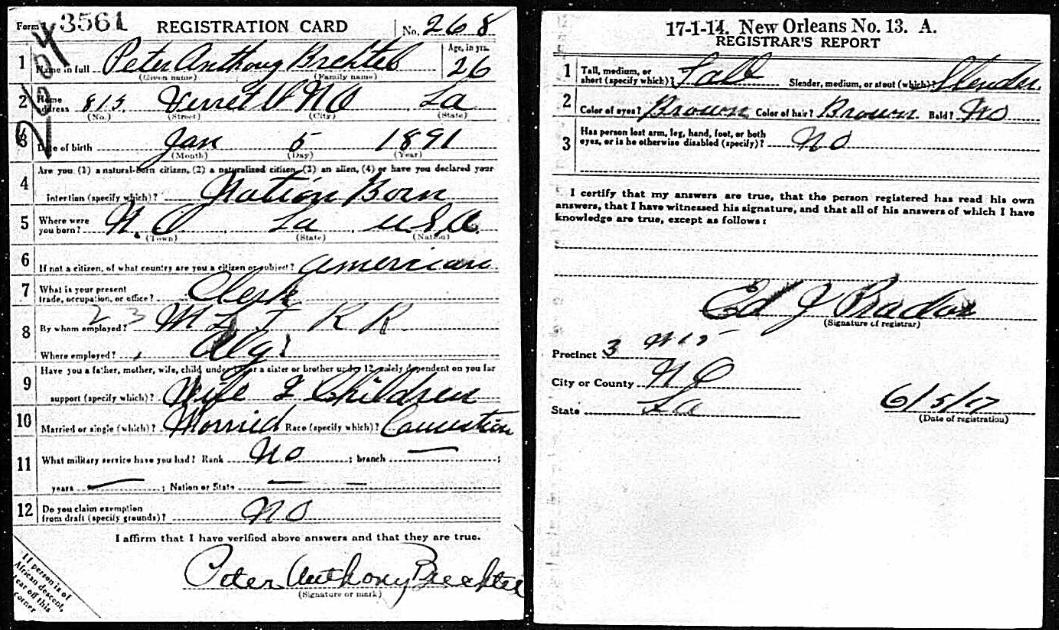 Form 1 3561 REGISTRATION CARD No. 268
2604
1 Name in full Peter Anthony Brechtel Age, in yrs. 26
(Given name) (Family name)
2 Home address 815 Verret N O La
(No.) (Street) (City) (State)
3 Date of birth Jan 5 1891
(Month) (Day) (Year)
4 Are you (1) a natural-born citizen, (2) a naturalized citizen, (3) an alien, (4) or have you declared your
intention (specify which)? Nation Born
5 Where were you born? N. O La U S A
(Town) (State) (Nation)
6 If not a citizen, of what country are you a citizen or subject? American
7 What is your present trade, occupation, or office? Clerk
23
8 By whom employed? R R
Where employed? Algi
9 Have you a father, mother, wife, child under 12, or a sister or brother under 12, solely dependent on you for
support (specify which)? Wife 2 Children
10 Married or single (which)? Married Race (specify which)? Caucasian
11 What military service have you had? Rank No ; branch — ;
years — ; Nation or State — —
12 Do you claim exemption from draft (specify grounds)? No
I affirm that I have verified above answers and that they are true.
Peter Anthony Brechtel
(Signature or mark)
If person is of
African descent,
tear off this
corner
17-1-14. New Orleans No. 13. A.
REGISTRAR'S REPORT
1 Tall, medium, or short (specify which)? Tall Slender, medium, or stout (which)? Slender.
2 Color of eyes? Brown Color of hair? Brown Bald? No
3 Has person lost arm, leg, hand, foot, or both eyes, or is he otherwise disabled (specify)? No
I certify that my answers are true, that the person registered has read his own
answers, that I have witnessed his signature, and that all of his answers of which I have
knowledge are true, except as follows:
Ed J
(Signature of registrar)
Precinct 3 W 15
City or County N O
State La 6/5/17
(Date of registration)